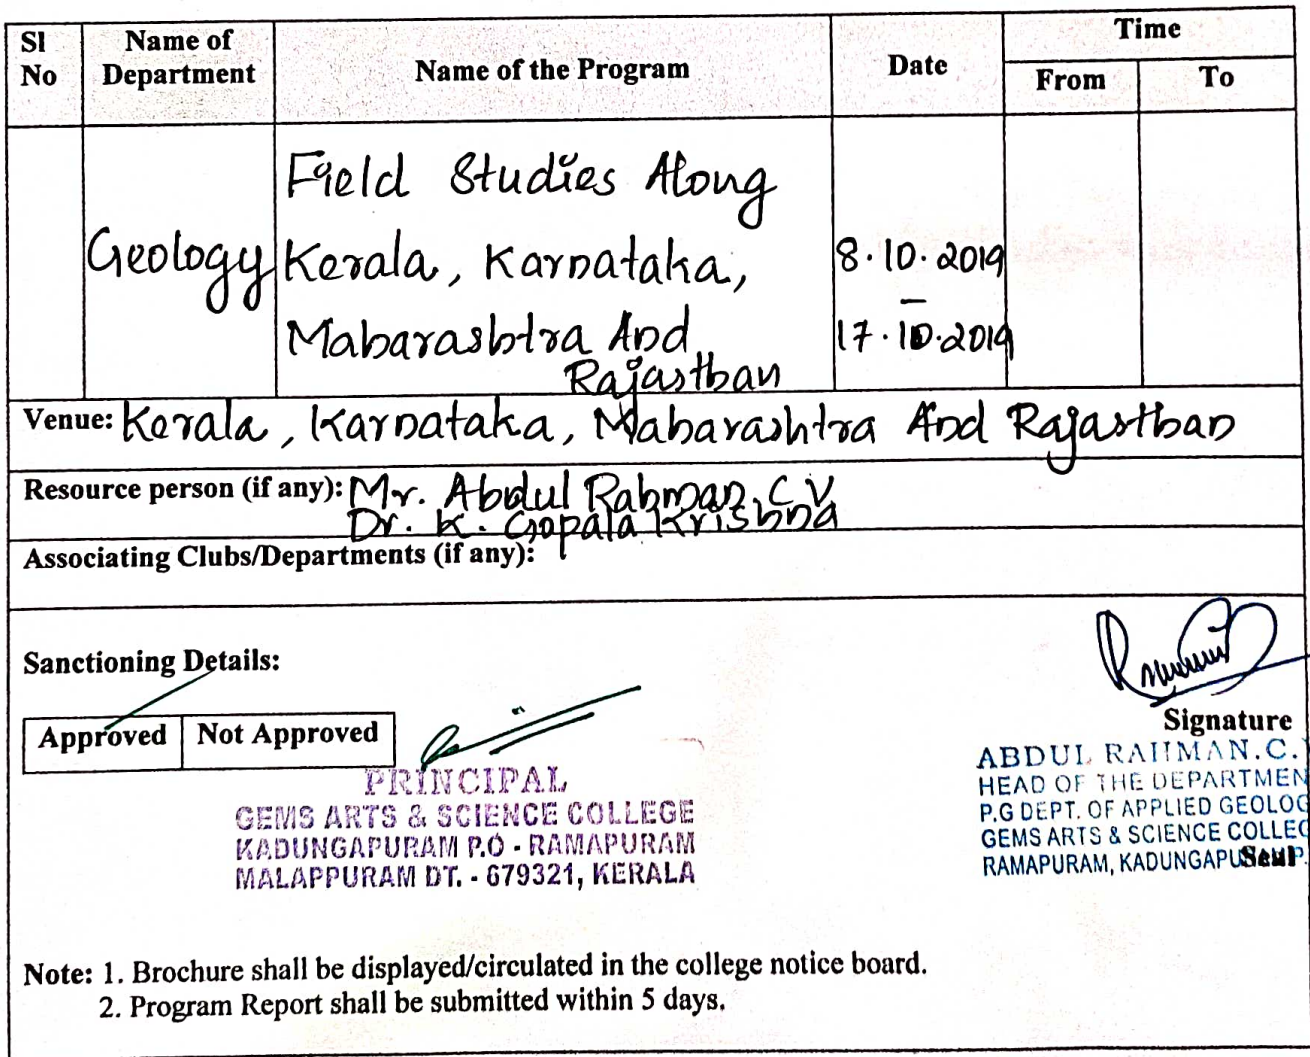 Sl No Name of Department Name of the Program Date Time
From To
Geology Field Studies Along
Kerala, Karnataka, 8.10.2019
–
Maharashtra And 17.10.2019
Rajasthan
Venue: Kerala, Karnataka, Maharashtra And Rajasthan
Resource person (if any): Mr. Abdul Rahman. C V
Dr. K. Gopala Krishna
Associating Clubs/Departments (if any):
Sanctioning Details:
Approved Not Approved
PRINCIPAL
GEMS ARTS & SCIENCE COLLEGE
KADUNGAPURAM P.O - RAMAPURAM
MALAPPURAM DT. - 679321, KERALA
Signature
ABDUL RAHMAN.C.
HEAD OF THE DEPARTMEN
P.G DEPT. OF APPLIED GEOLOG
GEMS ARTS & SCIENCE COLLEG
RAMAPURAM, KADUNGAPU
Seal
Note: 1. Brochure shall be displayed/circulated in the college notice board.
2. Program Report shall be submitted within 5 days.